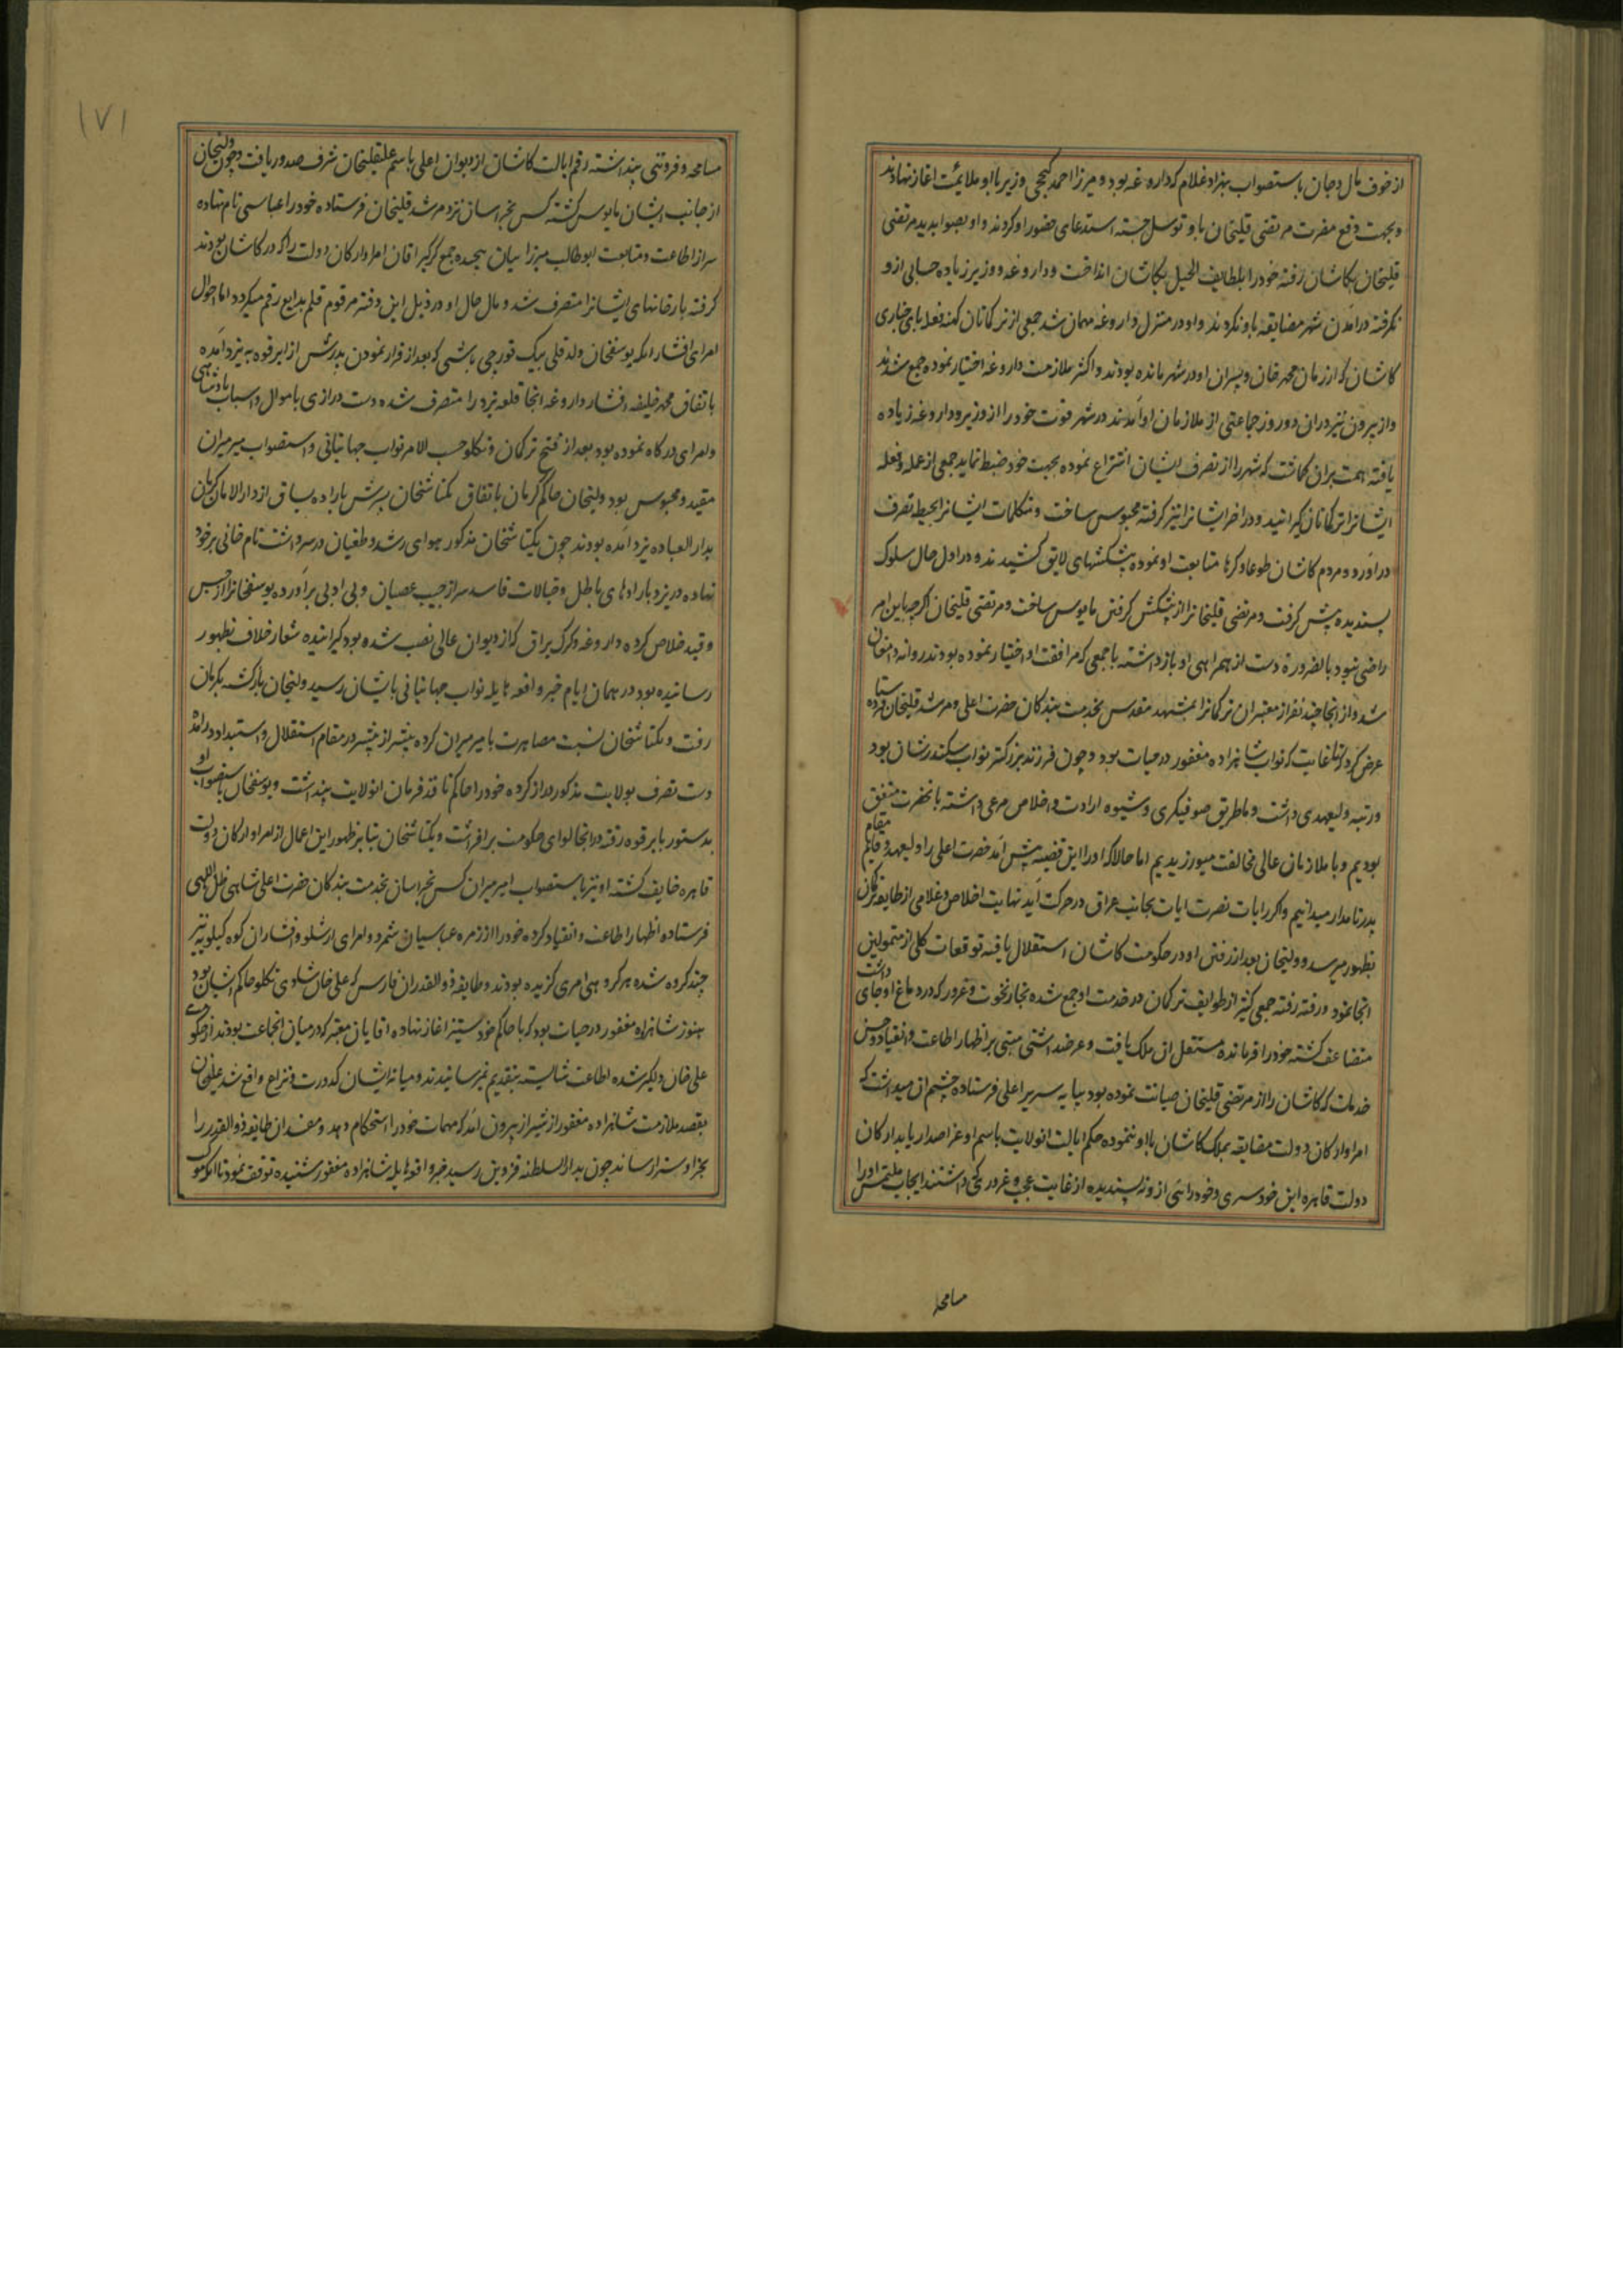 از خوف مال و جان باستصواب بهزاد غلام که داروغه بود و میرزا احمد کججی وزیر با او ملایمت اغاز نهادند
و بجهت دفع مضرت مرتضی قلیخان باو توسل جسته استدعای حضور او کردند و او بصوابدید مرتضی
قلیخان بکاشان رفته خود را بلطایف الحیل بکاشان انداخت و داروغه و وزیر زیاده حسابی ازو
نکرفته در امدن شهر مضایقه باو نکردند و او در منزل داروغه مهمان شد جمعی از ترکمانان کهنه فعله
کاشان که از زمان محمد خان و پسران او در شهر مانده بودند و اکثر ملازمت داروغه اختیار نموده جمع شدند
و از بیرون نیز دران دو روز جماعتی از ملازمان او آمدند در شهر قوت خود را از وزیر و داروغه زیاده
یافته همت بران کماشت که شهر را از تصرف ایشان انتزاع نموده بجهت خود ضبط نماید جمعی از عمله و فعله
ایشانرا بترکمانان کیرانید و در اخر ایشانرا نیز کرفته محبوس ساخت و متملکات ایشانرا بحیطه تصرف
در آورد و مردم کاشان طوعا و کرها متابعت او نموده پیشکشهای لایق کشیدند و در اول حال سلوک
پسندیده پیش کرفت و مرتضی قلیخانرا از پیشکش کرفتن مایوس ساخت و مرتضی قلیخان اکرچه باین امر
راضی نبود بالضرورة دست از همراهی او باز داشته با جمعی که مرافقت او اختیار نموده بودند روانه دامغان
شد و از انجا چند نفر از معتبران ترکمانرا بمشهد مقدس بخدمت بندکان حضرت اعلی و مرشد قلیخان فرستاده
عرض کرد که تا غایت که نواب شاهزاده مغفور در حیات بود و چون فرزند بزرکتر نواب سکندرشان بود
و رتبه ولیعهدی داشت و ما طریق صوفیکری و شیوه ارادت و اخلاص مرعی داشته بانحضرت متفق
بودیم و با ملازمان عالی مخالفت میورزیدیم اما حالا که او را این قضیه پیش آمد حضرت اعلی را ولیعهد و قایم مقام
پدر نامدار میدانیم و اکر رایات نصرت ایات بجانب عراق در حرکت آید نهایت اخلاص و غلامی از طایفه ترکمان
بظهور میرسد و ولیخان بعد از رفتن او در حکومت کاشان استقلال یافته توقعات کلی از متمولین
انجا نمود و رفته رفته جمعی کثیر از طوایف ترکمان در خدمت او جمع شده بخار نخوت و غرور که در دماغ او جای داشت
متضاعف کشته خود را فرمانده مستقل ان ملک یافت و عرضه داشتی مبنی بر اظهار اطاعت و انقیاد و حسن
خدمات که کاشان را از مرتضی قلیخان صیانت نموده بود بپایه سریر اعلی فرستاده چشم ان میداشت که
امرا و ارکان دولت مضایقه بملک کاشان با او ننموده حکم ایالت انولایت باسم او عز اصدار یابد ارکان
دولت قاهره این خودسری و خودرائی ازو نه پسندیده از غایت عجب و غرور که داشتند ایجاب ملتمس او را
مسامحه
مسامحه و فروتنی پنداشته رقم ایالت کاشان از دیوان اعلی باسم علیقلیخان شرف صدور یافت و چون ولیخان
از جانب ایشان مایوس کشته کس بخراسان نزد مرشد قلیخان فرستاده خود را عباسی نام نهاده
سر از اطاعت و متابعت ابوطالب میرزا ییان پیچیده جمع کثیر اقان امرا و ارکان دولت را که در کاشان بودند
کرفته بارخانهای ایشانرا متصرف شد و مال حال او در ذیل این وقت مرقوم قلم بدایع رقم میکردد اما احوال
امرای افشار انکه یوسفخان ولد قلی بیک قورچی باشی که بعد از فرار نمودن پدرش از ابرقوه به یزد آمده
باتفاق محمد خلیفه افشار داروغه انجا قلعه یزد را متصرف شده دست درازی باموال و اسباب پادشاهی
و امرای درکاه نموده بود بعد از فتح ترکمان و تکلو حسب الامر نواب جهانبانی و استصواب میرمیران
مقید و محبوس بود ولیخان حاکم کرمان باتفاق بکتاشخان پسرش باراده یساق از دارالامان کرمان
بدارالعباده یزد آمده بودند چون بکتاشخان مذکور هوای رشد و طغیان در سر داشت نام خانی بر خود
نهاده در یزد بارادهای باطل و خیالات فاسد سر از جیب عصیان و بی ادبی برآورده یوسفخانرا از حبس
و قید خلاص کرده داروغه و کرک یراق که از دیوان عالی نصب شده بود کیرانیده شعار خلاف بظهور
رسانیده بود در همان ایام خبر واقعه هایله نواب جهانبانی بایشان رسید ولیخان بازکشته بکرمان
رفت و بکتاشخان نسبت مصاهرت با میرمیران کرده بیشتر از پیشتر در مقام استقلال و استبداد درآمد
دست تصرف بولایت مذکور دراز کرده خود را حاکم نافذ فرمان انولایت پنداشت و یوسفخان باستصواب او
بدستور بابرقوه رفته در انجا لوای حکومت برافراشت و بکتاشخان بنابر ظهور این اعمال از امرا و ارکان دولت
قاهره خایف کشته او نیز باستصواب امیرمیران کس بخراسان بخدمت بندکان حضرت اعلی شاهی ظل اللهی
فرستاده اظهار اطاعت و انقیاد کرده خود را از زمره عباسیان شمرد و امرای ارشلو و افشاران کوه کیلویه نیز
چند کروه شده هر کروهی امری کزیده بودند و طایفه ذوالقدران فارس که علی خان شاملوی تکلو حاکم ایشان بود
هنوز شاهزاده مغفور در حیات بود که با حاکم خود ستیز اغاز نهاده اقایان معتبر که در میان انجماعت بودند از حکومت
علی خان دلکیر شده اطاعت شایسته بتقدیم نمیرسانیدند و میانه ایشان کدورت و نزاع واقع شد علیخان
بقصد ملازمت شاهزاده مغفور از شیراز بیرون آمد که مهمات خود را استحکام دهد و مفسدان طایفه ذوالقدر را
بجزا و سزا رساند چون بدارالسلطنه قزوین رسید خبر واقعه هایله شاهزاده مغفور شنیده توقف نمود تا انکه موکب
۱۷۱